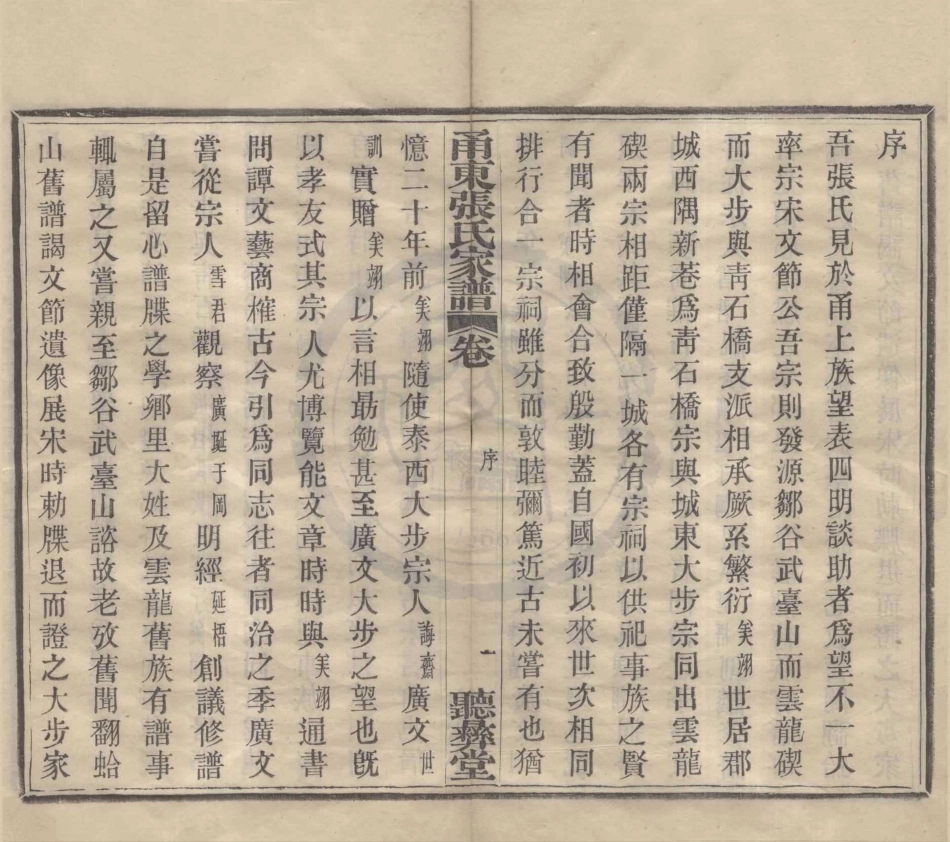 序
吾張氏見於甬上族望表四明談助者爲望不一大
率宗宋文節公吾宗則發源鄒谷武臺山而雲龍碶
而大步與靑石橋支派相承厥系繁衍美翊世居郡
城西隅新巷爲靑石橋宗與城東大步宗同出雲龍
碶兩宗相距僅隔一城各有宗祠以供祀事族之賢
有聞者時相會合致殷勤蓋自國初以來世次相同
排行合一宗祠雖分而敦睦彌篤近古未嘗有也猶
甬東張氏家譜 卷 序 一 聽彝堂
憶二十年前美翊隨使泰西大步宗人誨齋廣文世
訓實贈美翊以言相勗勉甚至廣文大步之望也旣
以孝友式其宗人尤博覽能文章時時與美翊通書
問譚文藝商榷古今引爲同志往者同治之季廣文
嘗從宗人雪君觀察廣埏于岡明經延梧創議修譜
自是留心譜牒之學鄉里大姓及雲龍舊族有譜事
輒屬之又嘗親至鄒谷武臺山諮故老攷舊聞翻蛤
山舊譜謁文節遺像展宋時勅牒退而證之大步家